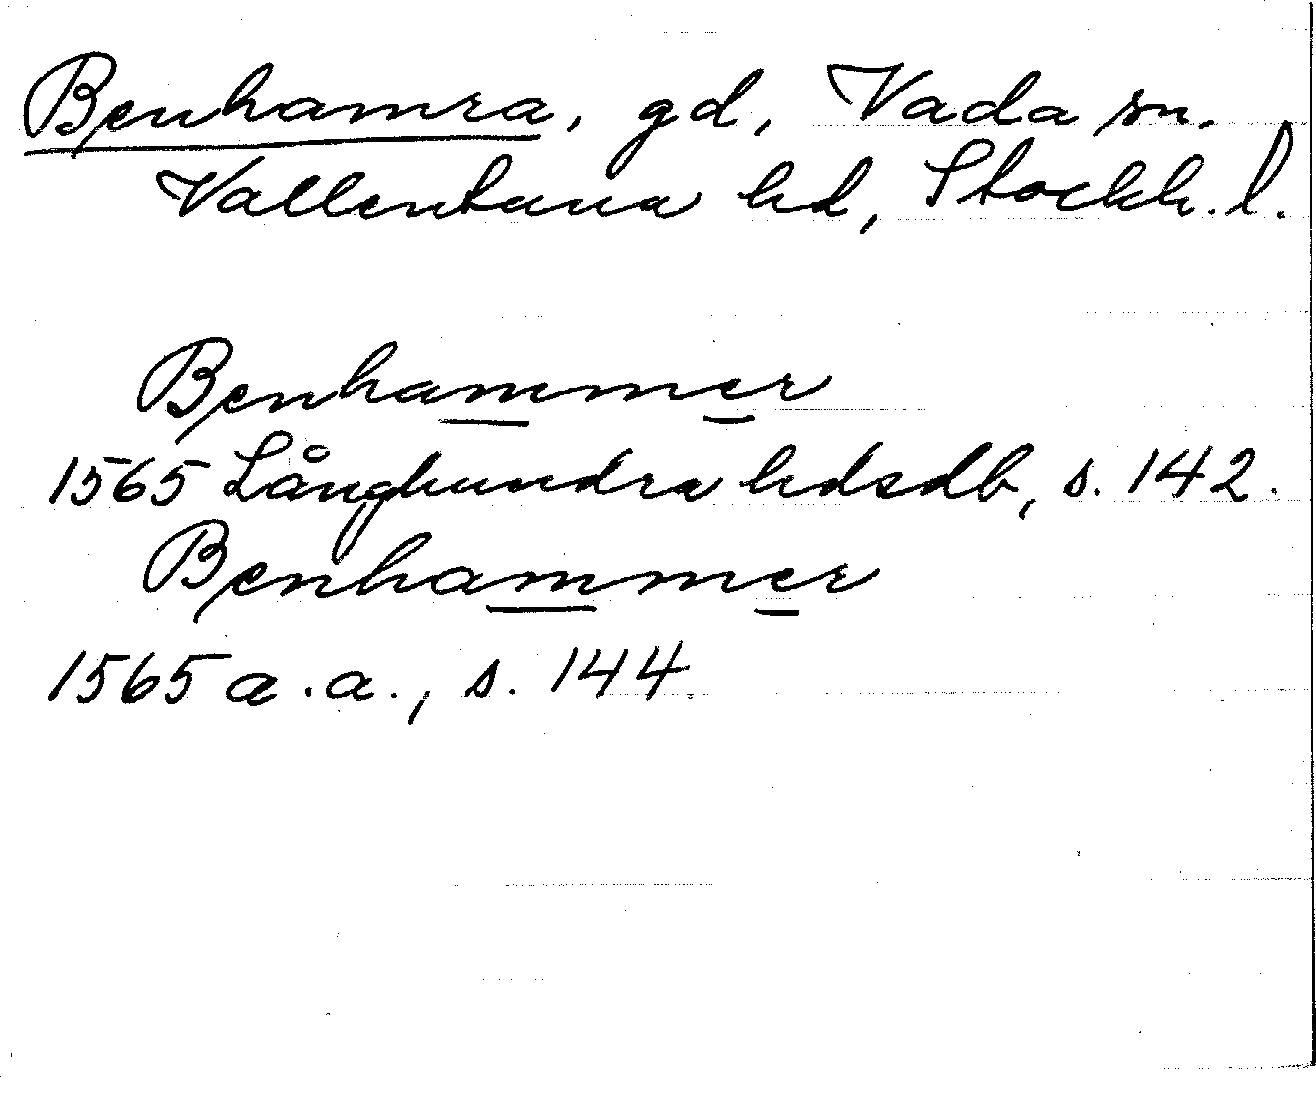 Benhamra, gd, Vada sn.
Vallentuna hd, Stockh. l.
Benhammer
1565 Långhundra hdsdb, s. 142.
Benhammer
1565 a.a., s. 144